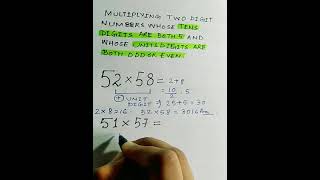 MULTIPLYING TWO DIGIT
NUMBERS WHOSE TENS
DIGITS ARE BOTH 5 AND
WHOSE UNITS DIGITS ARE
BOTH ODD OR EVEN.
52 × 58 = 2+8
= 10/2 = 5
+ UNIT
DIGIT 25+5 = 30
2×8=16 52×58 = 3016 Ans
51 × 57 =